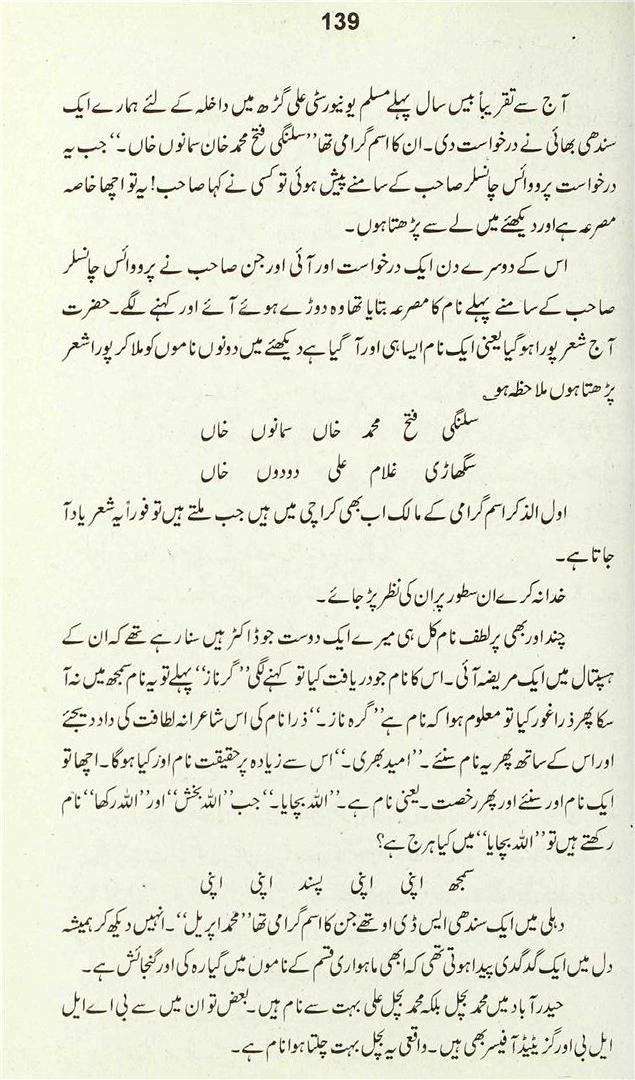 139
آج سے تقریباً بیس سال پہلے مسلم یونیورسٹی علی گڑھ میں داخلہ کے لئے ہمارے ایک
سندھی بھائی نے درخواست دی۔ ان کا اسم گرامی تھا ”سلنگی فتح محمد خان سمانوں خاں۔“ جب یہ
درخواست پرووائس چانسلر صاحب کے سامنے پیش ہوئی تو کسی نے کہا صاحب! یہ تو اچھا خاصہ
مصرعہ ہے اور دیکھئے میں لے سے پڑھتا ہوں۔
اس کے دوسرے دن ایک درخواست اور آئی اور جن صاحب نے پرووائس چانسلر
صاحب کے سامنے پہلے نام کا مصرعہ بتایا تھا وہ دوڑے ہوئے آئے اور کہنے لگے۔ حضرت
آج شعر پورا ہو گیا یعنی ایک نام ایسا ہی اور آ گیا ہے دیکھئے میں دونوں ناموں کو ملا کر پورا شعر
پڑھتا ہوں ملاحظہ ہو
سلنگی فتح محمد خاں سمانوں خاں
سگھاڑی غلام علی دودوں خاں
اول الذکر اسم گرامی کے مالک اب بھی کراچی میں ہیں جب ملتے ہیں تو فوراً یہ شعر یاد آ
جاتا ہے۔
خدا نہ کرے ان سطور پر ان کی نظر پڑ جائے۔
چند اور بھی پر لطف نام کل ہی میرے ایک دوست جو ڈاکٹر ہیں سنا رہے تھے کہ ان کے
ہسپتال میں ایک مریضہ آئی۔ اس کا نام جو دریافت کیا تو کہنے لگی ”گرناز“ پہلے تو یہ نام سمجھ میں نہ آ
سکا پھر ذرا غور کیا تو معلوم ہوا کہ نام ہے ”گرہ ناز۔“ ذرا نام کی اس شاعرانہ لطافت کی داد دیجئے
اور اس کے ساتھ پھر یہ نام سنئے۔ ”امید بھری۔“ اس سے زیادہ پر حقیقت نام اور کیا ہوگا۔ اچھا تو
ایک نام اور سنئے اور پھر رخصت۔ یعنی نام ہے۔ ”اللہ بچایا۔“ جب ”اللہ بخش“ اور ”اللہ رکھا“ نام
رکھتے ہیں تو ”اللہ بچایا“ میں کیا ہرج ہے؟
سمجھ اپنی اپنی پسند اپنی اپنی
دہلی میں ایک سندھی ایس ڈی او تھے جن کا اسم گرامی تھا ”محمد اپریل“۔ انہیں دیکھ کر ہمیشہ
دل میں ایک گدگدی پیدا ہوتی تھی کہ ابھی ماہواری قسم کے ناموں میں گیارہ کی اور گنجائش ہے۔
حیدرآباد میں محمد بچل بلکہ محمد بچل علی بہت سے نام ہیں۔ بعض تو ان میں سے بی اے ایل
ایل بی اور گزیٹیڈ آفیسر بھی ہیں۔ واقعی یہ بچل بہت چلتا ہوا نام ہے۔